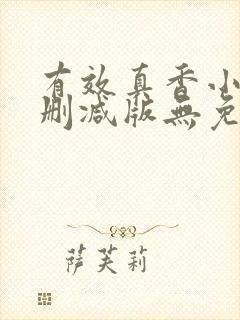 有效真香小
删减版無免
萨芙莉